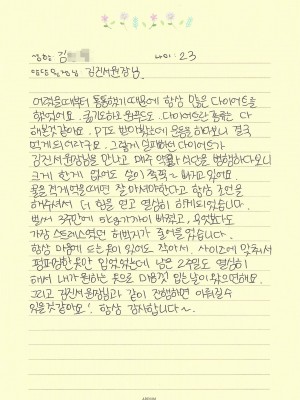 성함: 김 나이: 23
담당 김진서원장님
어렸을때부터 통통했기때문에 항상 많은 다이어트를
했었어요. 굶기도하고 원푸드, 다이어트란 종류는 다
해본것같아요. PT도 받아봤는데 운동을 하다보니 결국
먹게 되더라구요. 그렇게 실패하던 다이어트가
김진서원장님을 만나고 매주 약과 식단을 병행하다보니
크게 한게 없어도 살이 쭉쭉~ 빠지고있어요.
물을 적게먹을때면 잘 마셔야한다고 항상 조언을
해주셔서 더 힘을 얻고 열심히 하게되었습니다.
벌써 3주만에 빠졌고, 무엇보다도
가장 스트레스였던 허벅지가 줄어들었습니다.
항상 마음에 드는옷이 있어도 작아서, 사이즈에 맞춰서
펑퍼짐한옷만 입었었는데 남은 2주일도 열심히
해서 내가 원하는 옷으로 마음껏 입는날이 왔으면해요.
그리고 김진서원장님과 같이 진행하면 이뤄질수
있을것같아요! 항상 감사합니다~.